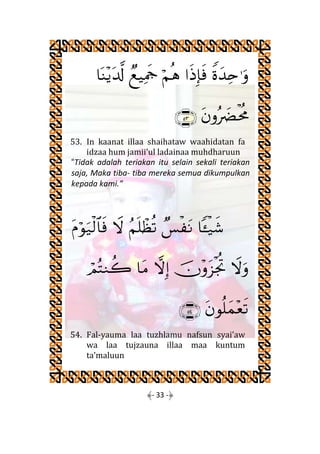 وَٰحِدَةً فَإِذَا هُمْ جَمِيعٌ لَّدَيْنَا
مُحْضَرُونَ ﴿٥٣﴾
53. In kaanat illaa shaihataw waahidatan fa
idzaa hum jamii'ul ladainaa muhdharuun
"Tidak adalah teriakan itu selain sekali teriakan
saja, Maka tiba- tiba mereka semua dikumpulkan
kepada kami."
فَٱلْيَوْمَ لَا تُظْلَمُ نَفْسٌ شَيْـًٔا
وَلَا تُجْزَوْنَ إِلَّا مَا كُنتُمْ
تَعْمَلُونَ ﴿٥٤﴾
54. Fal-yauma laa tuzhlamu nafsun syai'aw
wa laa tujzauna illaa maa kuntum
ta'maluun
- 33 -